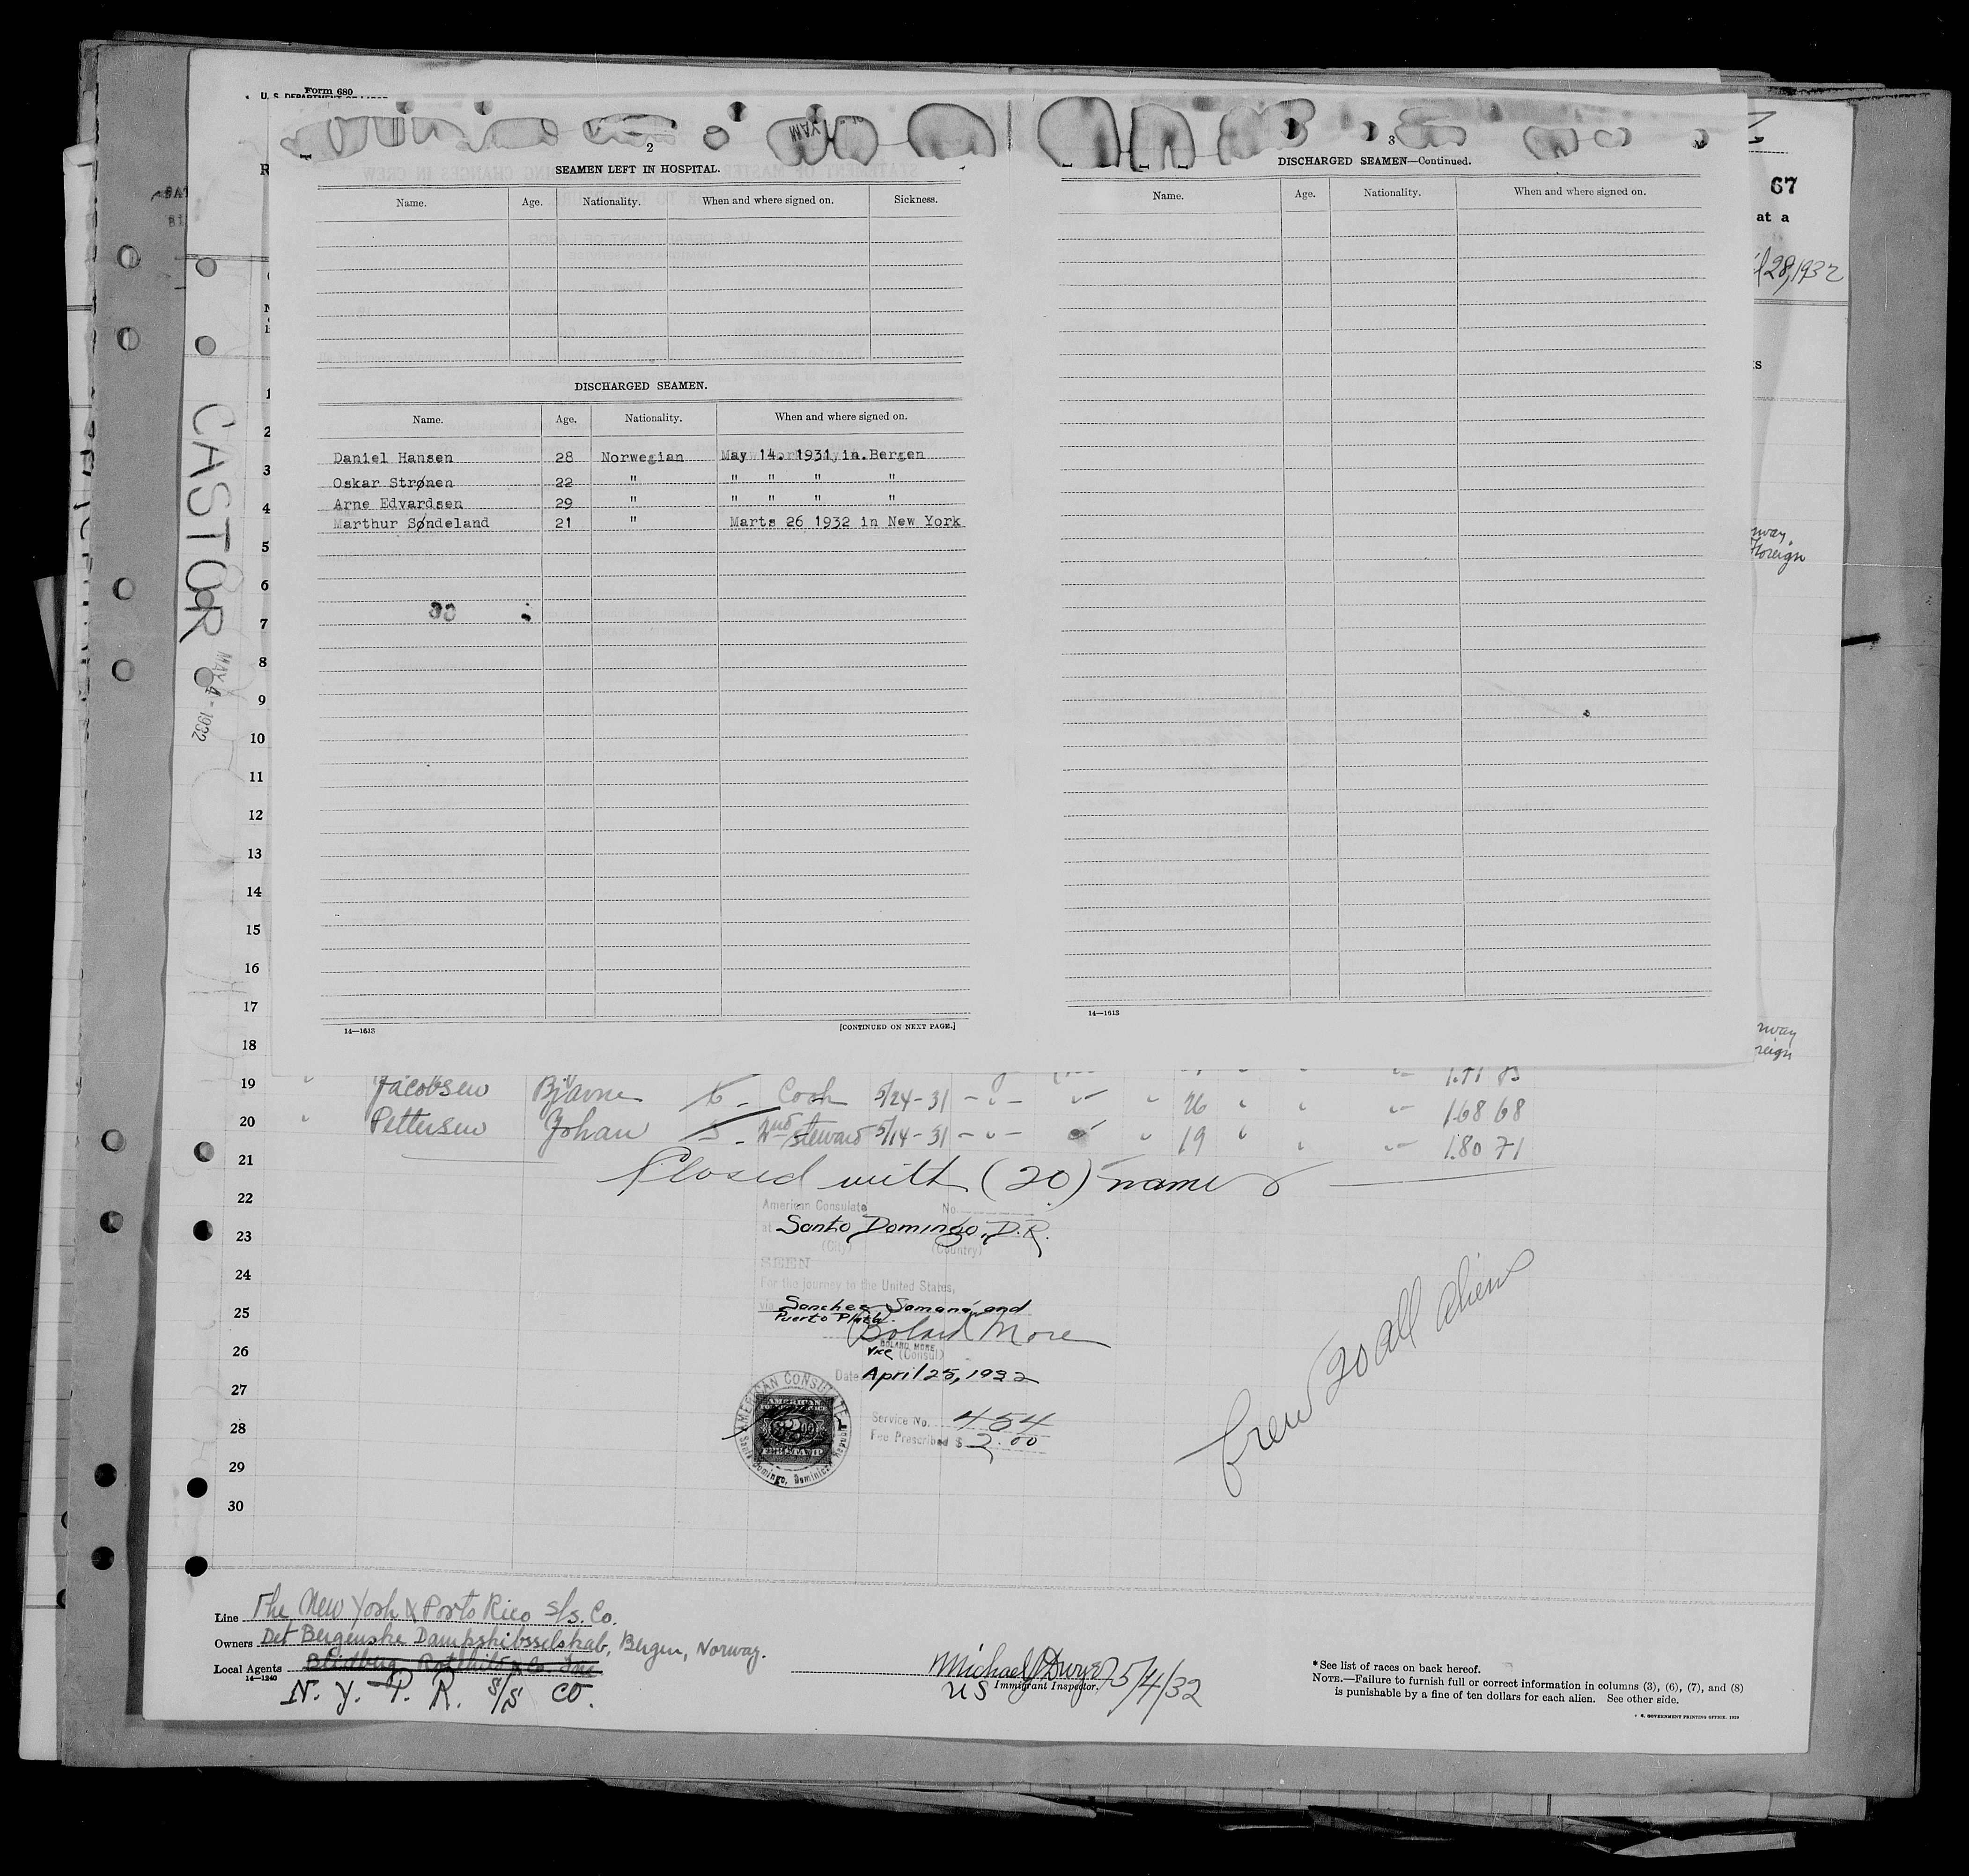 Form 680
U. S. DEPARTMENT OF LABOR
2
SEAMEN LEFT IN HOSPITAL.
Name. Age. Nationality. When and where signed on. Sickness.
DISCHARGED SEAMEN.
Name. Age. Nationality. When and where signed on.
Daniel Hansen 28 Norwegian May 14. 1931 in Bergen
Oskar Strønen 22 " " " " "
Arne Edvardsen 29 " " " " "
Marthur Søndeland 21 " Marts 26 1932 in New York
14—1613 [CONTINUED ON NEXT PAGE.]
3
DISCHARGED SEAMEN—Continued.
Name. Age. Nationality. When and where signed on.
14—1613
67
at a
28, 1932
CASTOR
MAY 4 - 1932
1
2
3
4
5
6
7
8
9
10
11
12
13
14
15
16
17
18
19 Jacobsen Bjarne 6 - Cook 5/24-31 26 168 68
20 Pettersen Johan 5 - 2nd Steward 5/14-31 19 1.80 71
21 Closed with (20) names
22
23
24
25
26
27
28
29
30
American Consulate No
at Santo Domingo, D.R.
(City) (Country)
SEEN
For the journey to the United States,
via Sanchez Samaná and
Puerto Plata.
Boland More
BOLAND MORE
Vice (Consul)
Date April 25, 1932
Service No. 454
Fee Prescribed $ 2.00
AMERICAN CONSULATE
Santo Domingo, Dominican Republic
AMERICAN
FEE STAMP
Crew 20 all aliens
Line The New York & Porto Rico S/S. Co.
Owners Det Bergenske Dampskibsselskab, Bergen, Norway.
Local Agents
14—1240
N. Y. P. R. S/S Co.
Michael J Dwyer 5/4/32
US Immigrant Inspector.
*See list of races on back hereof.
NOTE.—Failure to furnish full or correct information in columns (3), (6), (7), and (8)
is punishable by a fine of ten dollars for each alien. See other side.
U. S. GOVERNMENT PRINTING OFFICE. 1929